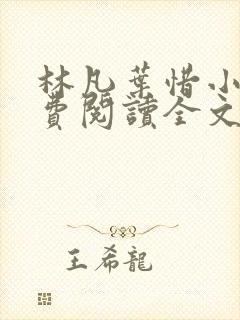 林凡葉惜小
費閱讀全文
王希龍